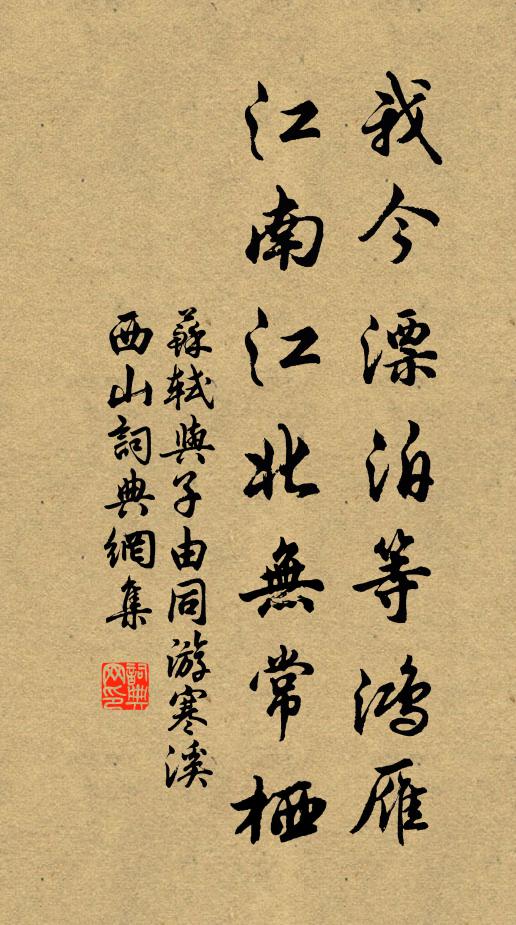 我今漂泊等鴻雁
江南江北無常栖
蘇軾與子由同游寒溪
西山詞典網集
詞典
网印